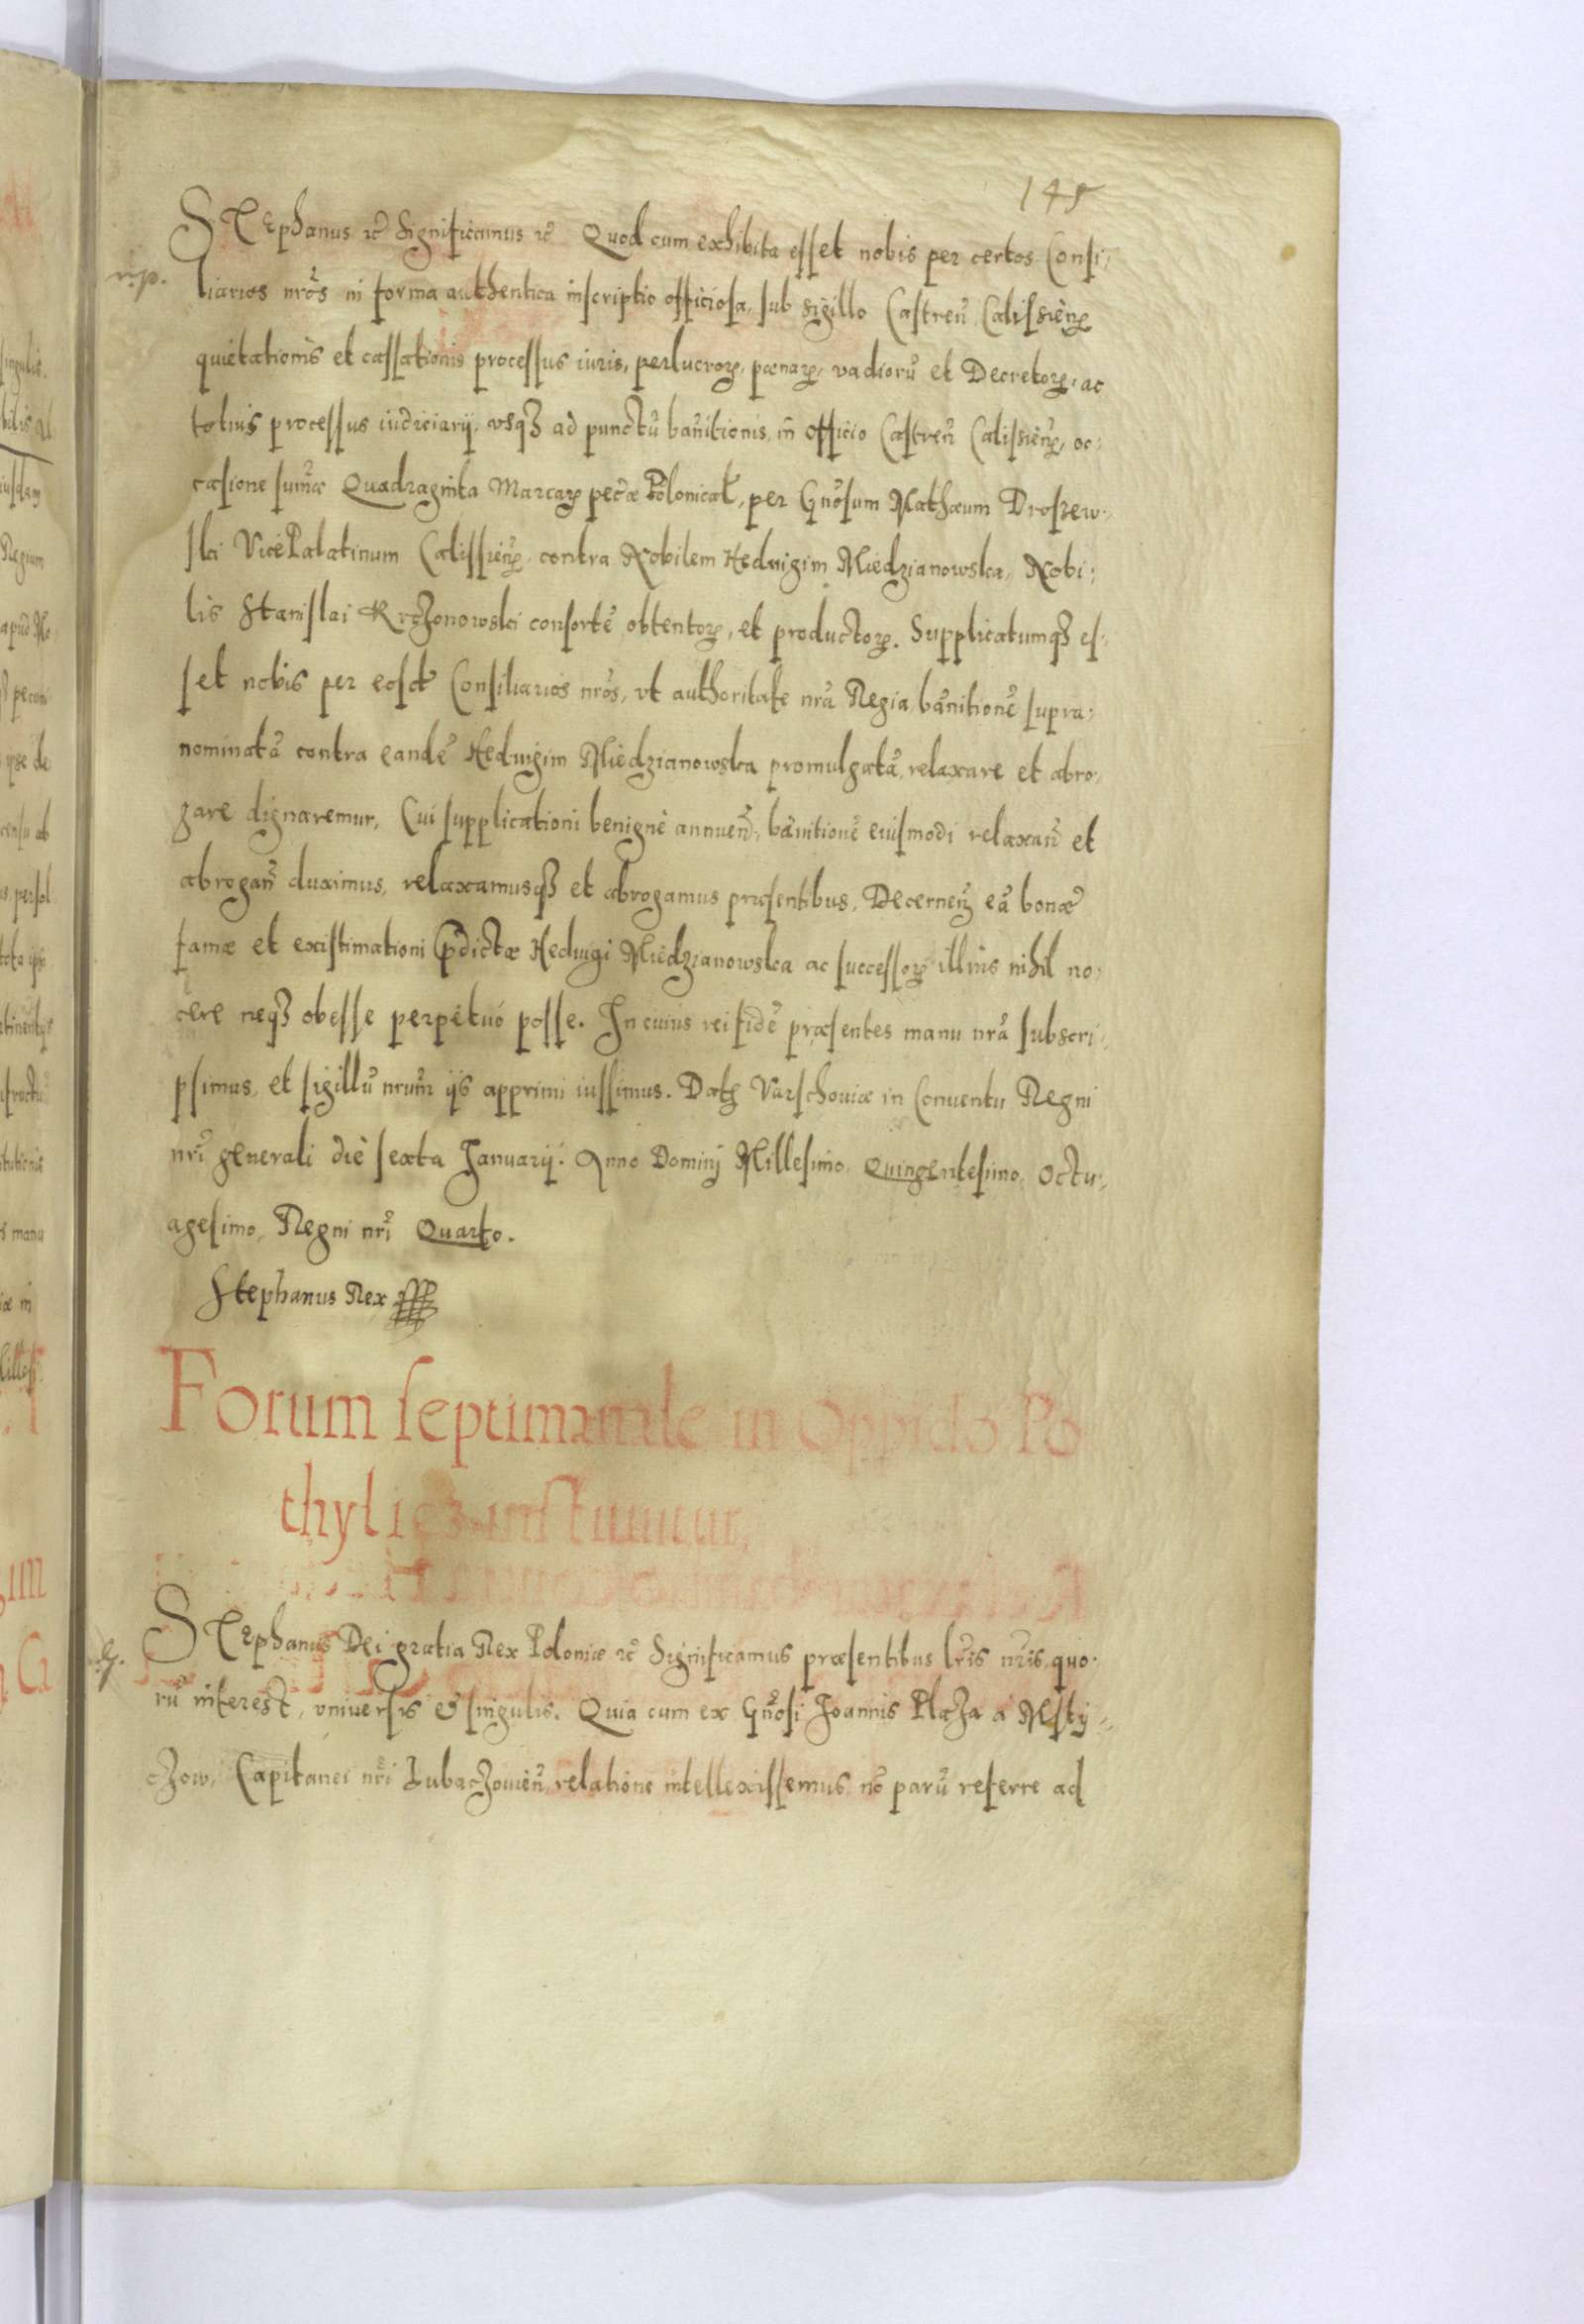 145
Stephanus etc̃ Significamus etc̃ Quod cum exhibita esset nobis per certos Consi-
m.p.
liarios nr̃os in forma authentica inscriptio officiosa, sub sigillo Castren̄ Calissien̄
quietationis et cassationis processus iuris, perlucroꝝ, pœnaꝝ, vadiorū et Decretoꝝ, ac
totius processus iudiciarij, vsqꝫ ad punctū bañitionis, in officio Castren̄ Calissien̄, oc-
casione sum̃æ Quadraginta Marcaꝝ pec̃æ Polonical̃, per Gñosum Mathæum Droszew-
ski VicePalatinum Calissien̄, contra Nobilem Hedwigim Miedzianowska, Nobi-
lis Stanislai Krczonowski consortē obtentoꝝ, et productoꝝ. Supplicatumqꝫ es-
set nobis per eosd̃ Consiliarios nr̃os, vt authoritate nr̃a Regia, bañitionē supra-
nominatā contra eandē Hedwigim Miedzianowska promulgatā, relaxare et abro-
gare dignaremur, Cui supplicationi benignè annuen̄, bañitionē eiusmodi relaxan̄ et
abrogan̄ duximus, relaxamusqꝫ et abrogamus præsentibus, Decernen̄ eā bonæ
famæ et existimationi p̃dictæ Hedwigi Miedzianowska ac successoꝝ illius nihil no-
cere neqꝫ obesse perpetuó posse. In cuius rei fidē præsentes manu nr̃a subscri-
psimus, et sigillū nrum̃ ijs apprimi iussimus. Datꝫ Varschouiæ in Conuentu Regni
nr̃i generali diè sexta Januarij. Anno Dominj Millesimo Quingentesimo, Octu-
agesimo, Regni nr̃i Quarto.
Stephanus Rex
Forum septimanale in Oppido Po
thylicz instituitur.
Stephanus Dei gratia Rex Poloniæ etc̃ Significamus præsentibus lr̃is nr̃is quo-
rū interest, vniuersis & singulis. Quia cum ex Gñosi Joannis Plaza à Msty-
czow, Capitanei nr̃i Lubaczouien̄, relatione intellexissemus, nō parū referre ad